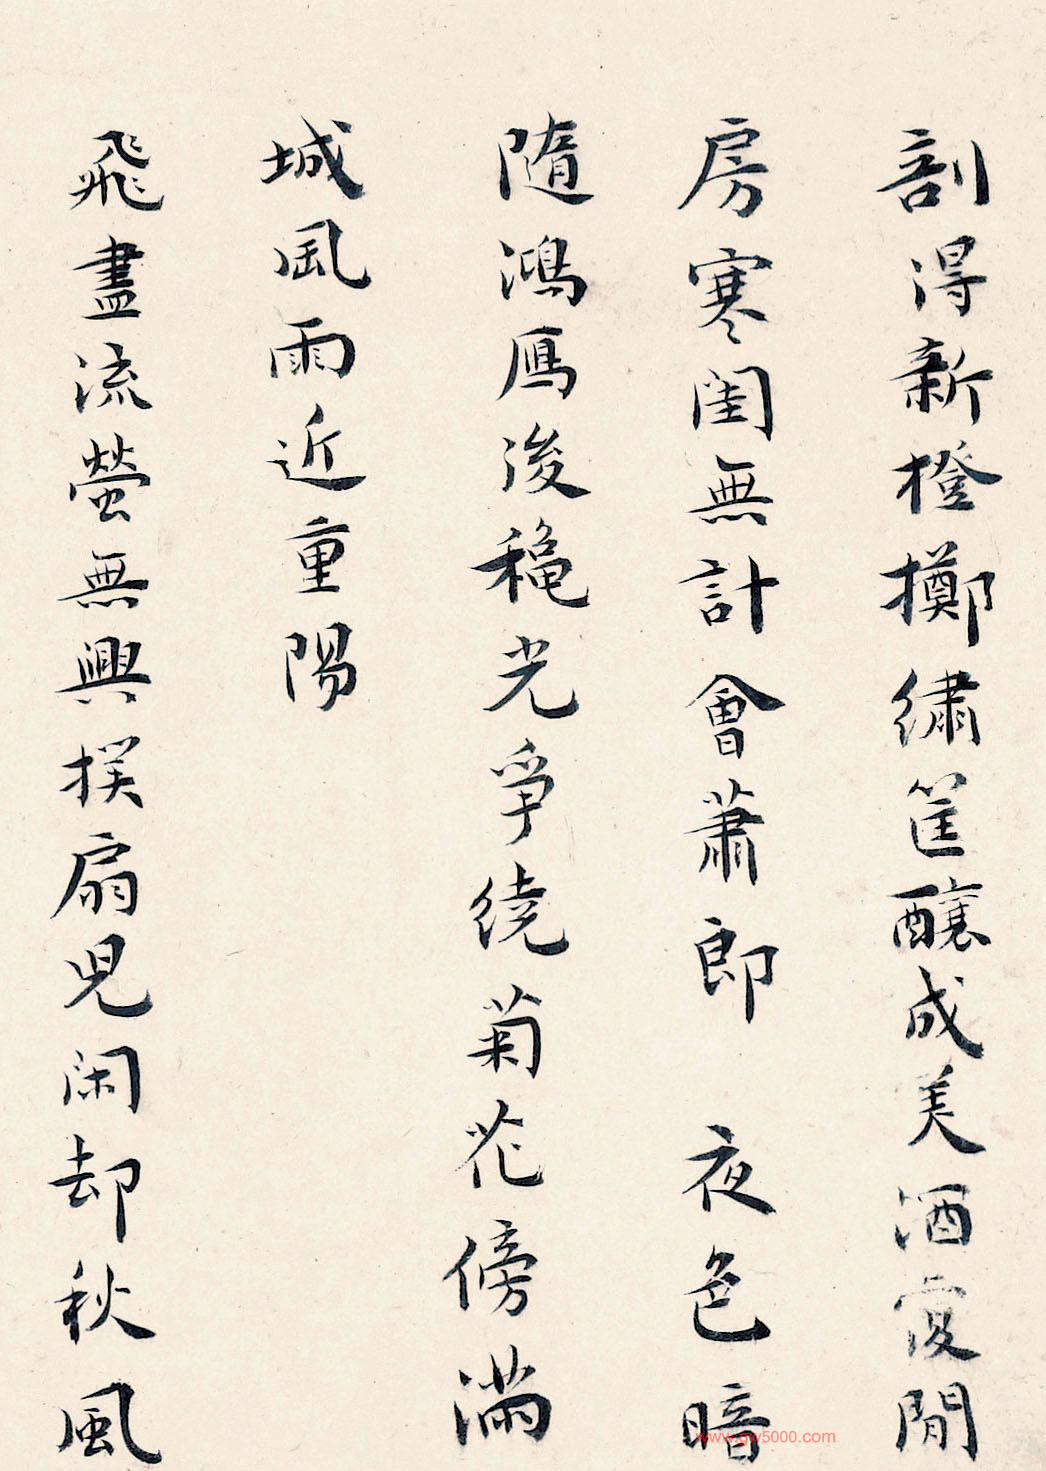 剖得新橙擲繡筐釀成美酒復閒
房寒閨無計會蕭郎 夜色暗
隨鴻鴈後穐光爭繞菊花傍滿
城風雨近重陽
飛盡流螢無興撲扇兒閑却秋風
www.gw5000.com